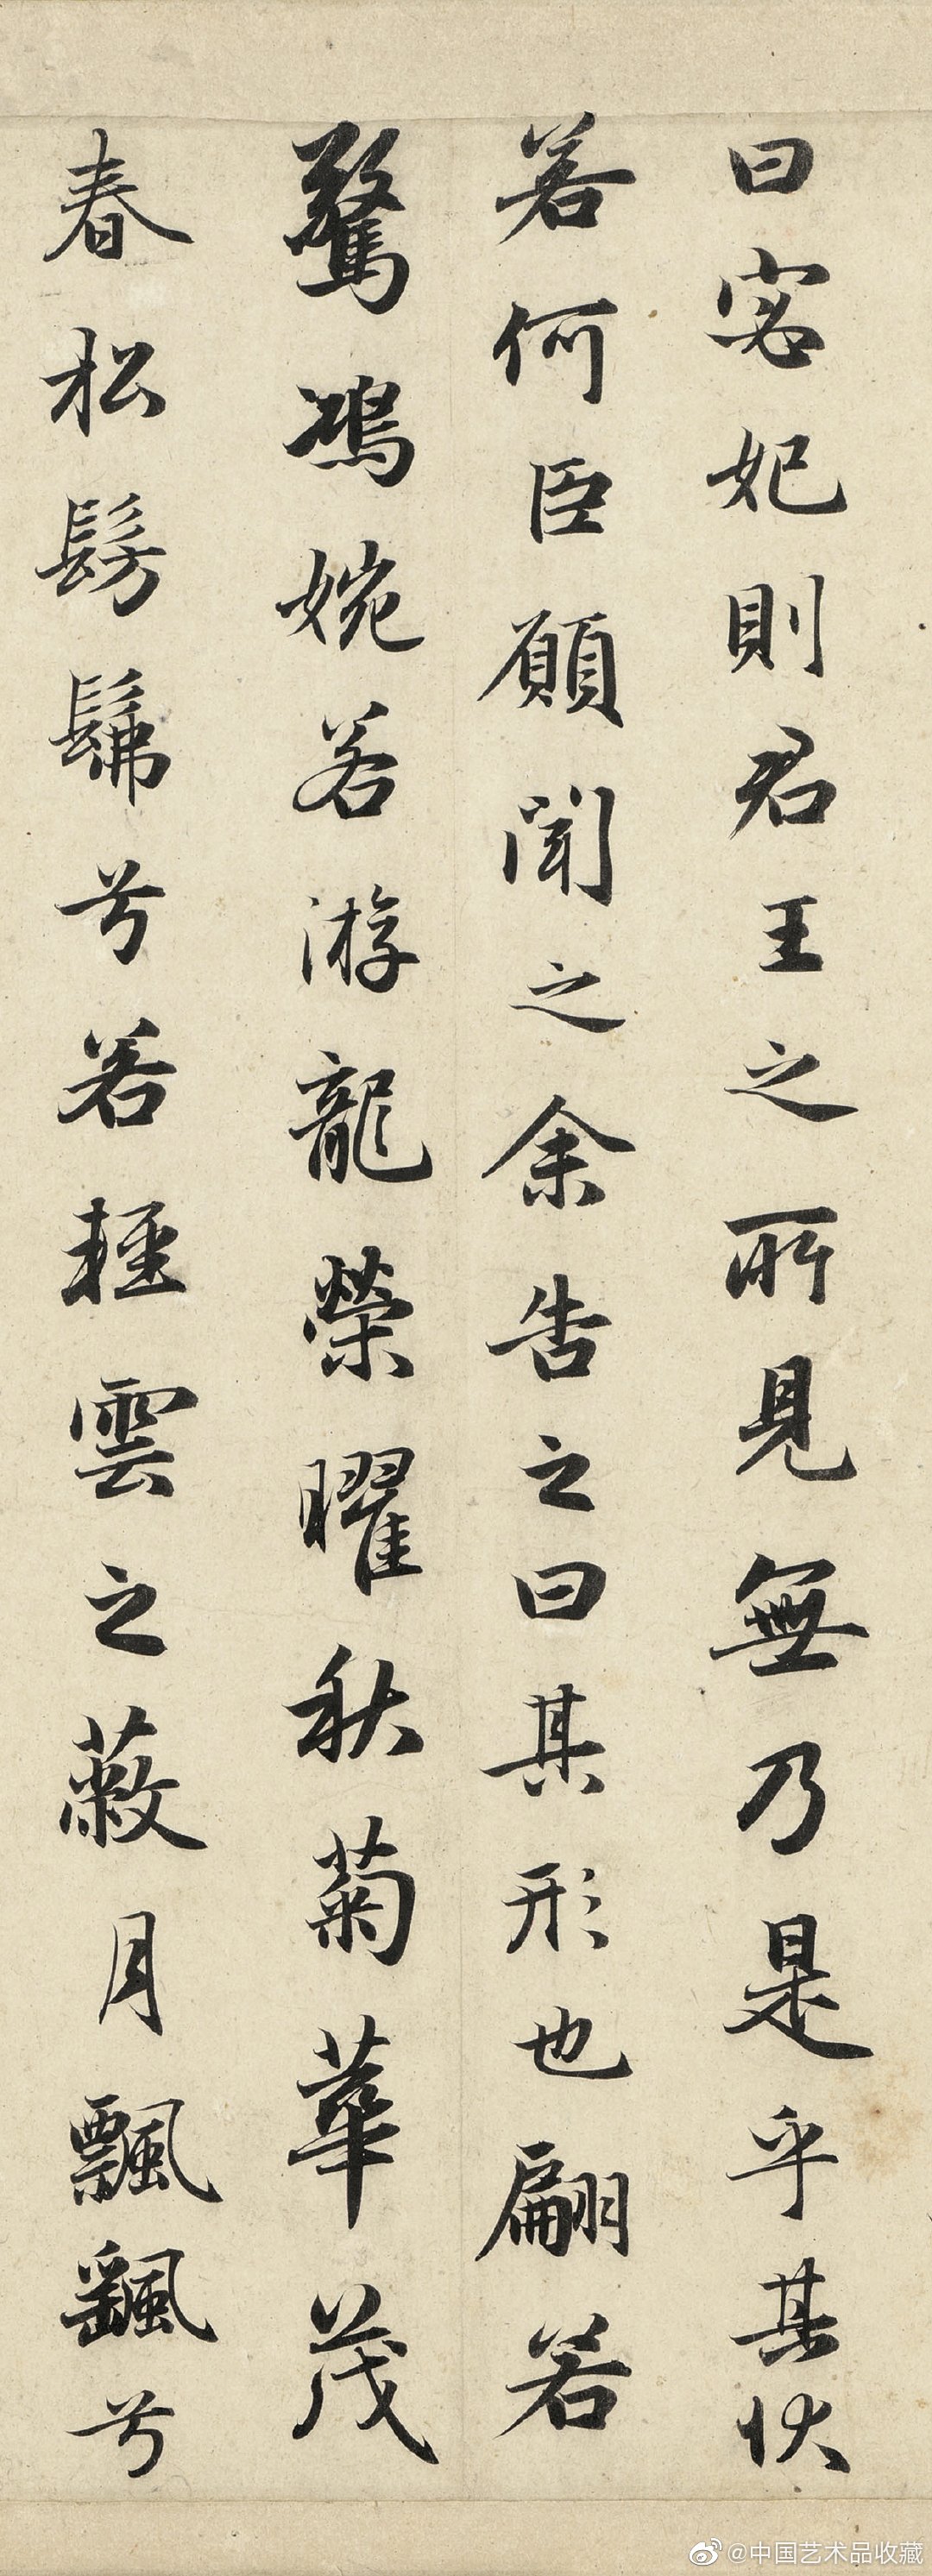 曰宓妃則君王之所見無乃是乎其狀
若何臣願聞之余告之曰其形也翩若
驚鴻婉若游龍榮曜秋菊華茂
春松髣髴兮若輕雲之蔽月飄颻兮
@中国艺术品收藏